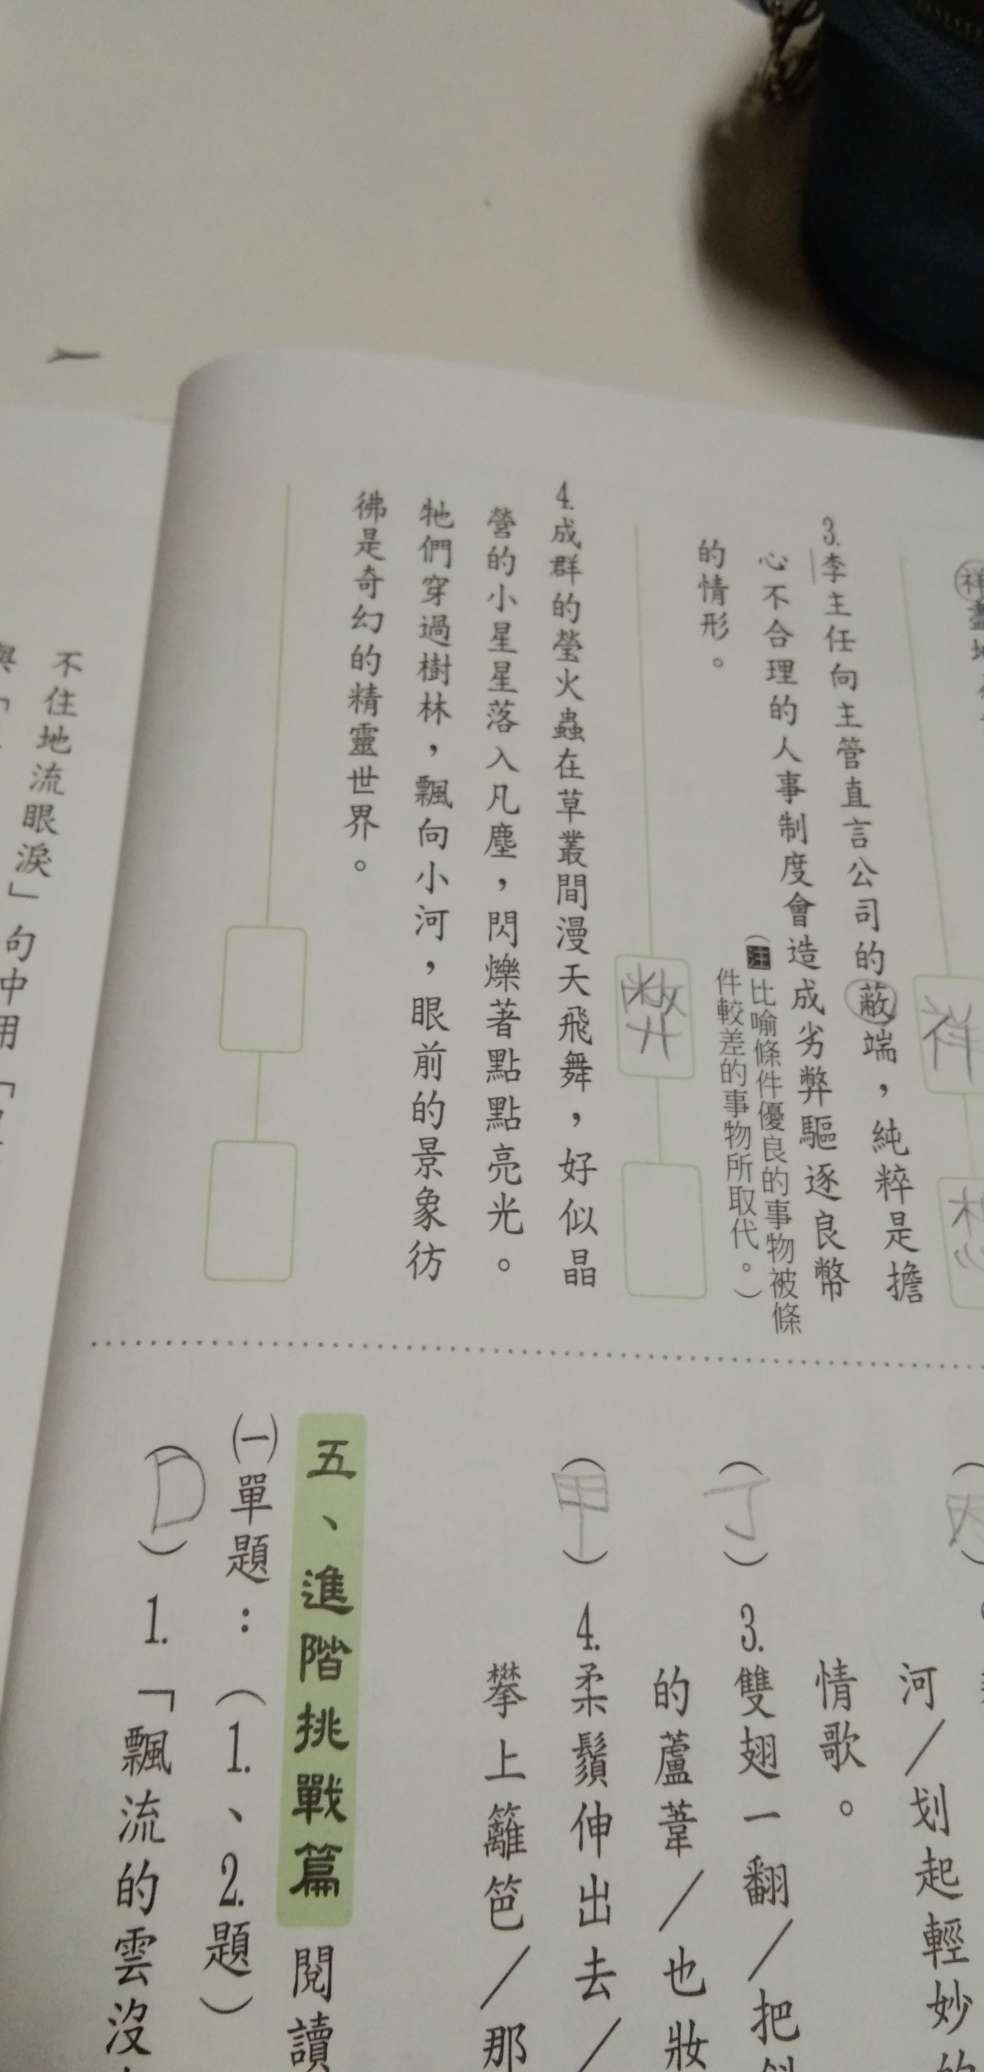 祥
想
3.李主任向主管直言公司的蔽端，純粹是擔
心不合理的人事制度會造成劣弊驅逐良幣
的情形。
（注比喻條件優良的事物被條
件較差的事物所取代。）
弊
4.成群的瑩火蟲在草叢間漫天飛舞，好似晶
營的小星星落入凡塵，閃爍著點點亮光。
牠們穿過樹林，飄向小河，眼前的景象彷
彿是奇幻的精靈世界。
（丙）
河／划起輕妙的
情歌。
（丁）3.雙翅一翻／把斜
的蘆葦／也妝
（甲）4.柔鬚伸出去／
攀上籬笆／那
五、進階挑戰篇
閱讀
㈠單題：（1.、2.題）
（D）1.「飄流的雲沒
不住地流眼淚」句中用「